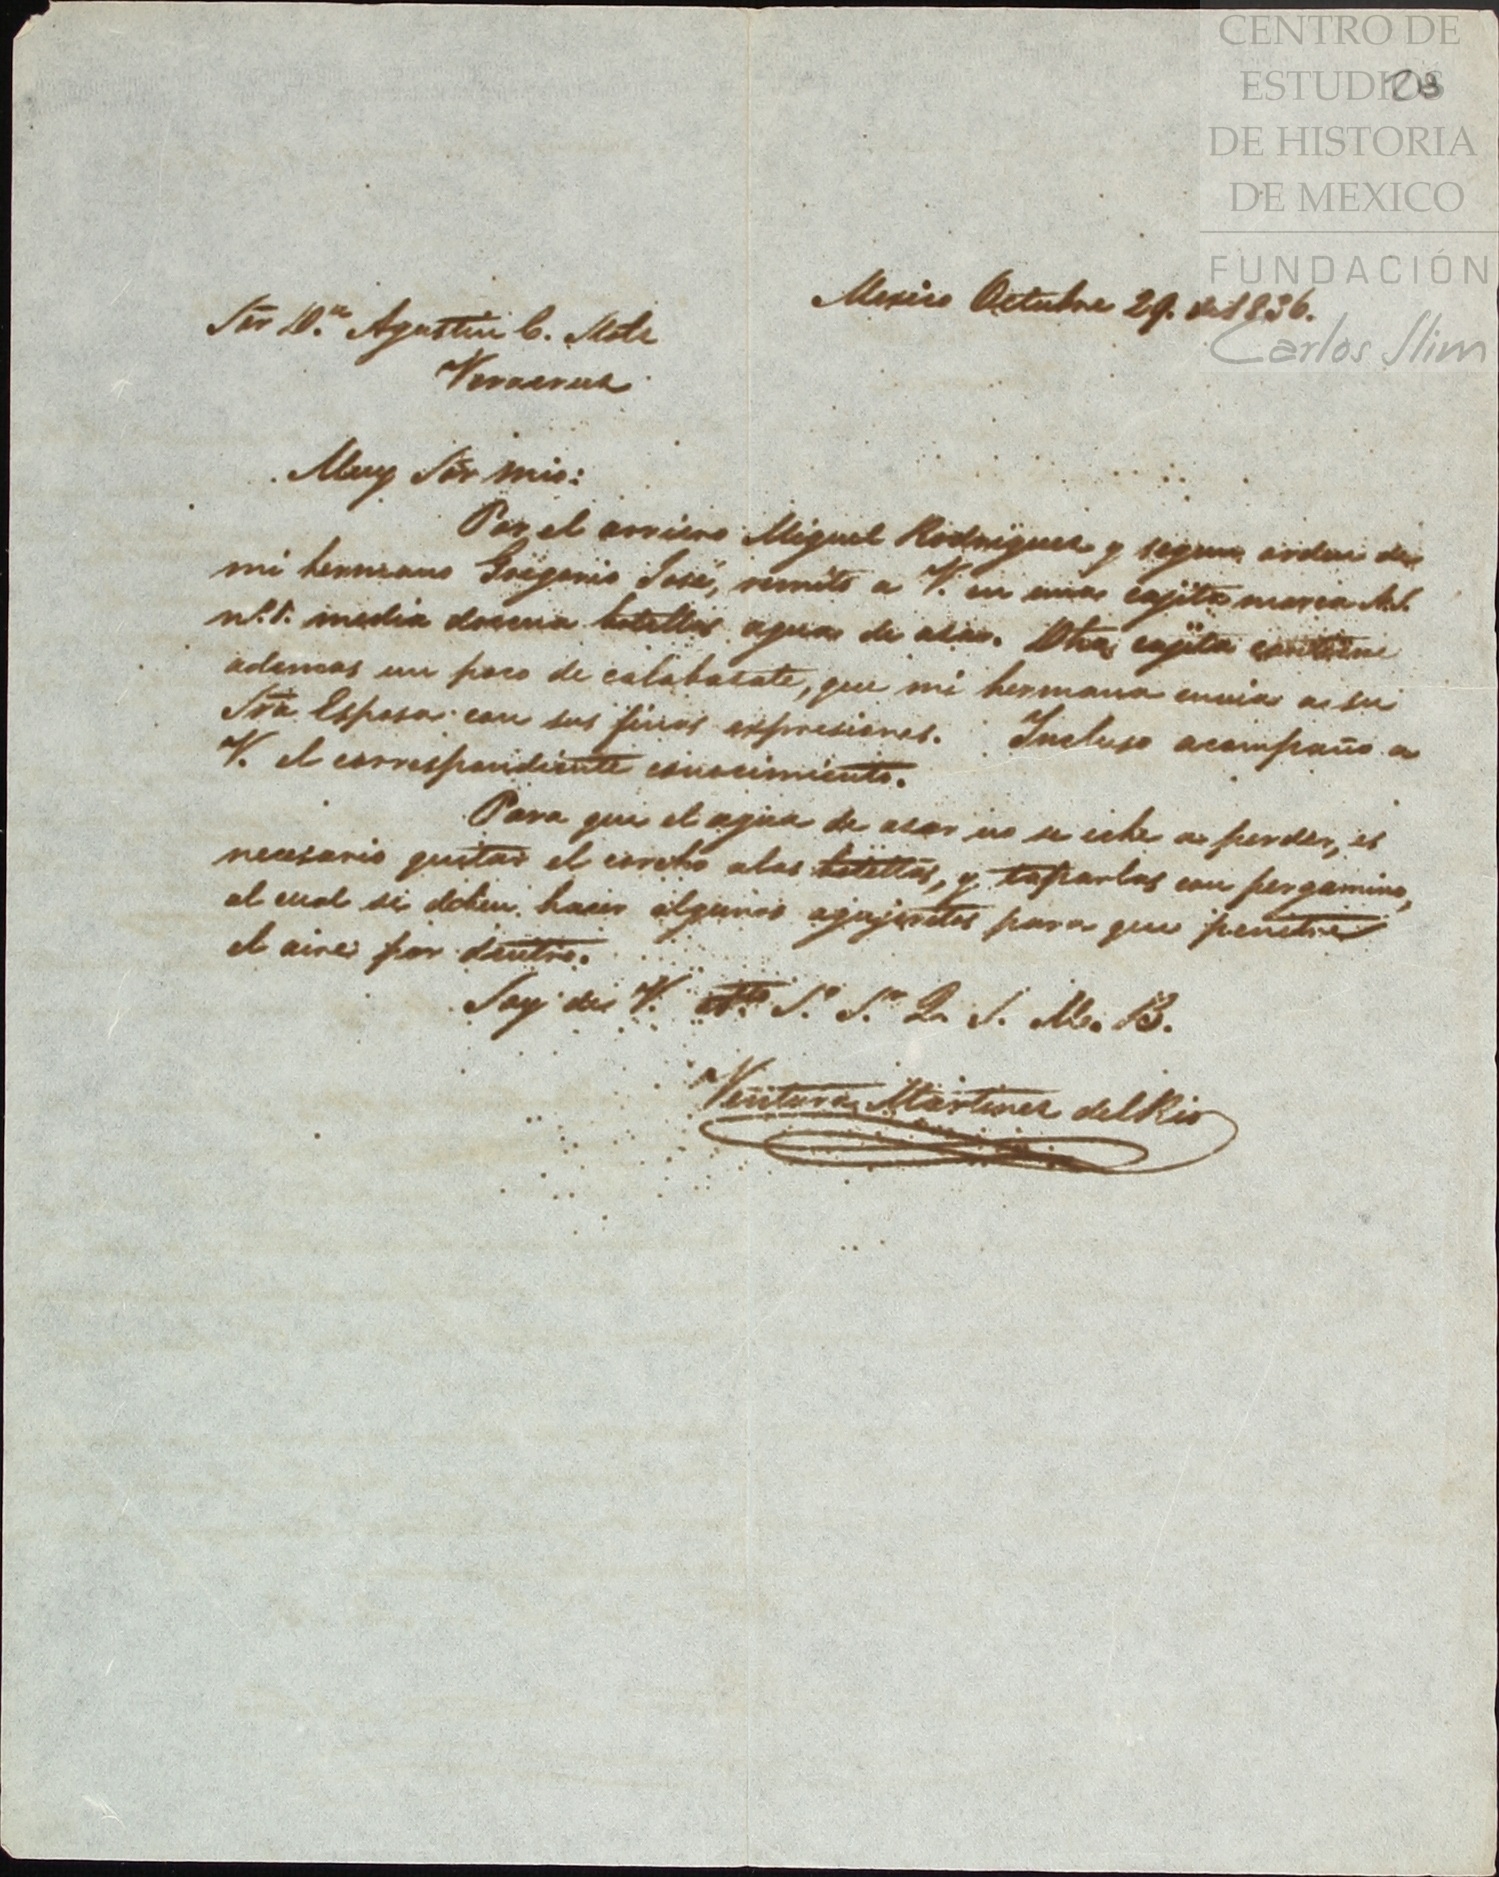 CENTRO DE
ESTUDIOS
DE HISTORIA
DE MEXICO
FUNDACIÓN
Carlos Slim
Mexico Octubre 29. de 1836.
Sõr D.n Agustin C.
Veracruz
Muy Sõr mio:
Por el arriero Miguel Rodriguez y segun orden de
mi hermano Gregorio José, remito a V. en una cajita marca A.S.
media docena botellas agua de asar. Dha cajita contiene
ademas un poco de calabasate, que mi hermana envia a su
Sr̃a Esposa con sus finas expresiones. Incluso acompaño a
V. el correspondiente conocimiento.
Para que el agua de asar no se eche a perder, es
necesario quitar el corcho a las botellas, y taparlas con pergamino,
al cual se deben hacer algunos agujeritos para que penetre
el aire por dentro.
Soy de V. atto S. S.r Q. S. M. B.
Ventura Martinez del Rio